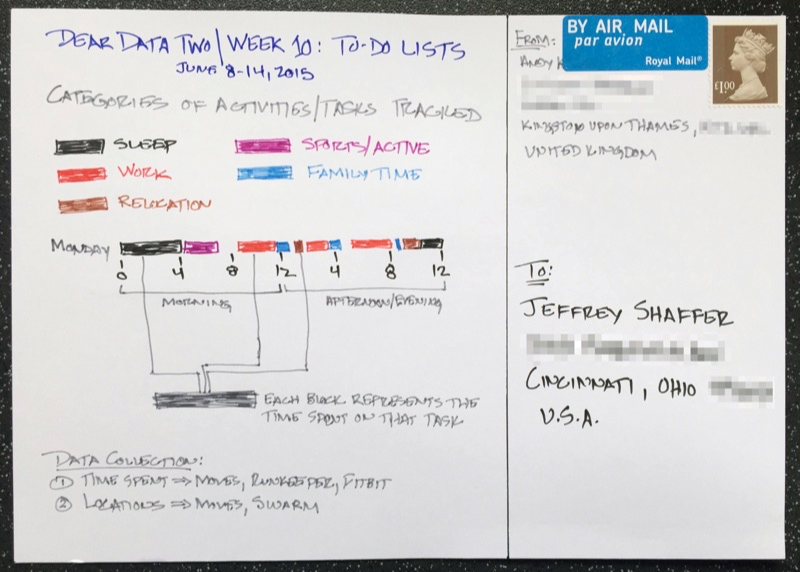 DEAR DATA TWO/WEEK 10: TO-DO LISTS
JUNE 8-14, 2015
CATEGORIES OF ACTIVITIES/TASKS TRACKED
SLEEP
SPORTS/ACTIVE
WORK
FAMILY TIME
RELOCATION
MONDAY
0 4 8 12 4 8 12
MORNING
AFTERNOON/EVENING
EACH BLOCK REPRESENTS THE
TIME SPENT ON THAT TASK
DATA COLLECTION:
① TIME SPENT ⇒ MOVES, RUNKEEPER, FITBIT
② LOCATIONS ⇒ MOVES, SWARM
FROM:
BY AIR MAIL
par avion
Royal Mail®
£1.00
ANDY
KINGSTON UPON THAMES,
UNITED KINGDOM
TO:
JEFFREY SHAFFER
CINCINNATI, OHIO
U.S.A.